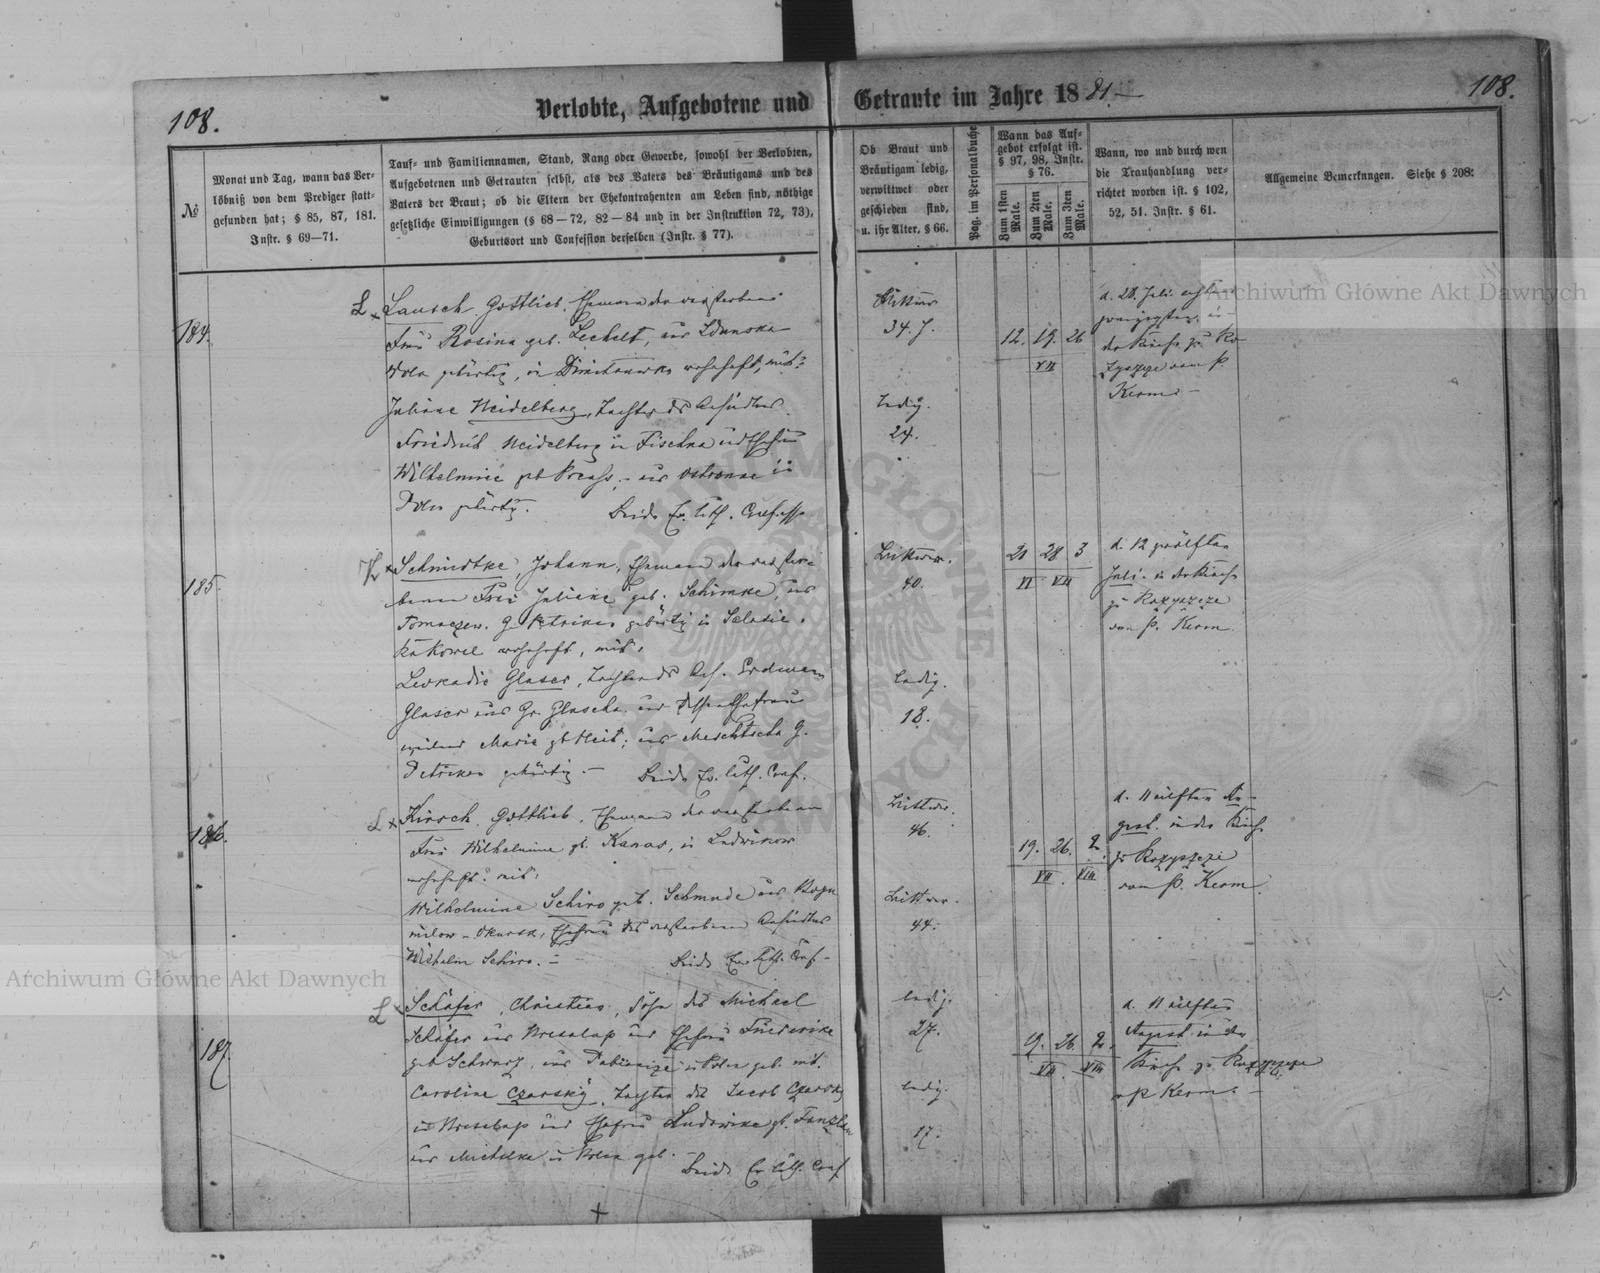 108.
Verlobte, Aufgebotene und Getraute im Jahre 1881.
108.
№
Monat und Tag, wann das Ver-
löbniß von dem Prediger statt-
gefunden hat; § 85, 87, 181.
Instr. § 69—71.
Tauf- und Familiennamen, Stand, Rang oder Gewerbe, sowohl der Verlobten,
Aufgebotenen und Getrauten selbst, als des Vaters des Bräutigams und des
Vaters der Braut; ob die Eltern der Ehekontrahenten am Leben sind, nöthige
gesetzliche Einwilligungen (§ 68—72, 82—84 und in der Instruktion 72, 73),
Geburtsort und Confession derselben (Instr. § 77).
Ob Braut und
Bräutigam ledig,
verwittwet oder
geschieden sind,
u. ihr Alter, § 66.
Pag. im Personalbuche
Wann das Auf-
gebot erfolgt ist.
§ 97, 98, Instr.
§ 76.
Zum 1sten Male.
Zum 2ten Male.
Zum 3ten Male.
Wann, wo und durch wen
die Trauhandlung ver-
richtet worden ist. § 102,
52, 51. Instr. § 61.
Allgemeine Bemerkungen. Siehe § 208.
184.
L × Lausch, Gottlieb, Ehemann der verstorbenen
Frau Rosina geb. Lechelt, aus Zdunska
Wola gebürtig, in wohnhaft, mit:
Juliane Heidelberg, Tochter des Ansiedlers
Friedrich Heidelberg in und Ehefrau
Wilhelmine geb. Preuss, aus in
Polen gebürtig. Beide Ev. luth. Confess.
Wittwer
34. J.
ledig.
24.
12. 19. 26
VII
d. 28. Juli acht und
zwanzigsten in
der Kirche zu Ro-
zyszcze von P.
Kerm
185.
× Schmidtke, Johann, Ehemann der verstor-
benen Frau Juliane geb. Schimke, aus
G. Petrikau gebürtig in
wohnhaft, mit:
Leokadie Glaser, Tochter des Ans. Erdmann
Glaser aus Gr. und dessen Ehefrau
Marie geb. aus G.
Petrikau gebürtig. Beide Ev. luth. Conf.
Wittwer.
40.
ledig.
18.
21 28 3
VI VII
d. 12 zwölften
Juli in der Kirche
zu Rozyszcze
von P. Kerm.
186.
L × Kirsch, Gottlieb, Ehemann der verstorbenen
Frau Wilhelmine gb. in Ludwikow
wohnhaft: mit:
Wilhelmine Schiro geb. Schmude aus
Ehefrau des verstorbenen Ansiedlers
Wilhelm Schiro. Beide Ev. luth. Conf.
Wittwer.
46.
Wittwe.
44.
19. 26. 2.
VII. VIII
d. 11 eilften Au-
gust. in der Kirche
zu Rozyszcze
von P. Kerm.
187.
L × Schäfer, Christian, Sohn des Michael
Schäfer aus und Ehefrau Friederike
geb. Schwarz, aus Pabianize in Polen geb. mit.
Caroline Czarsky, Tochter des Jacob Czarsky
in und Ehefrau Ludowika gb.
aus in Polen geb. Beide Ev. luth. Conf.
ledig.
27.
ledig.
17.
9. 26. 2.
VII. VIII
d. 11 eilften
August in der
Kirche zu Rozyszcze
v. P. Kerm.
Archiwum Główne Akt Dawnych
Archiwum Główne Akt Dawnych
ARCHIWUM GŁÓWNE AKT DAWNYCH